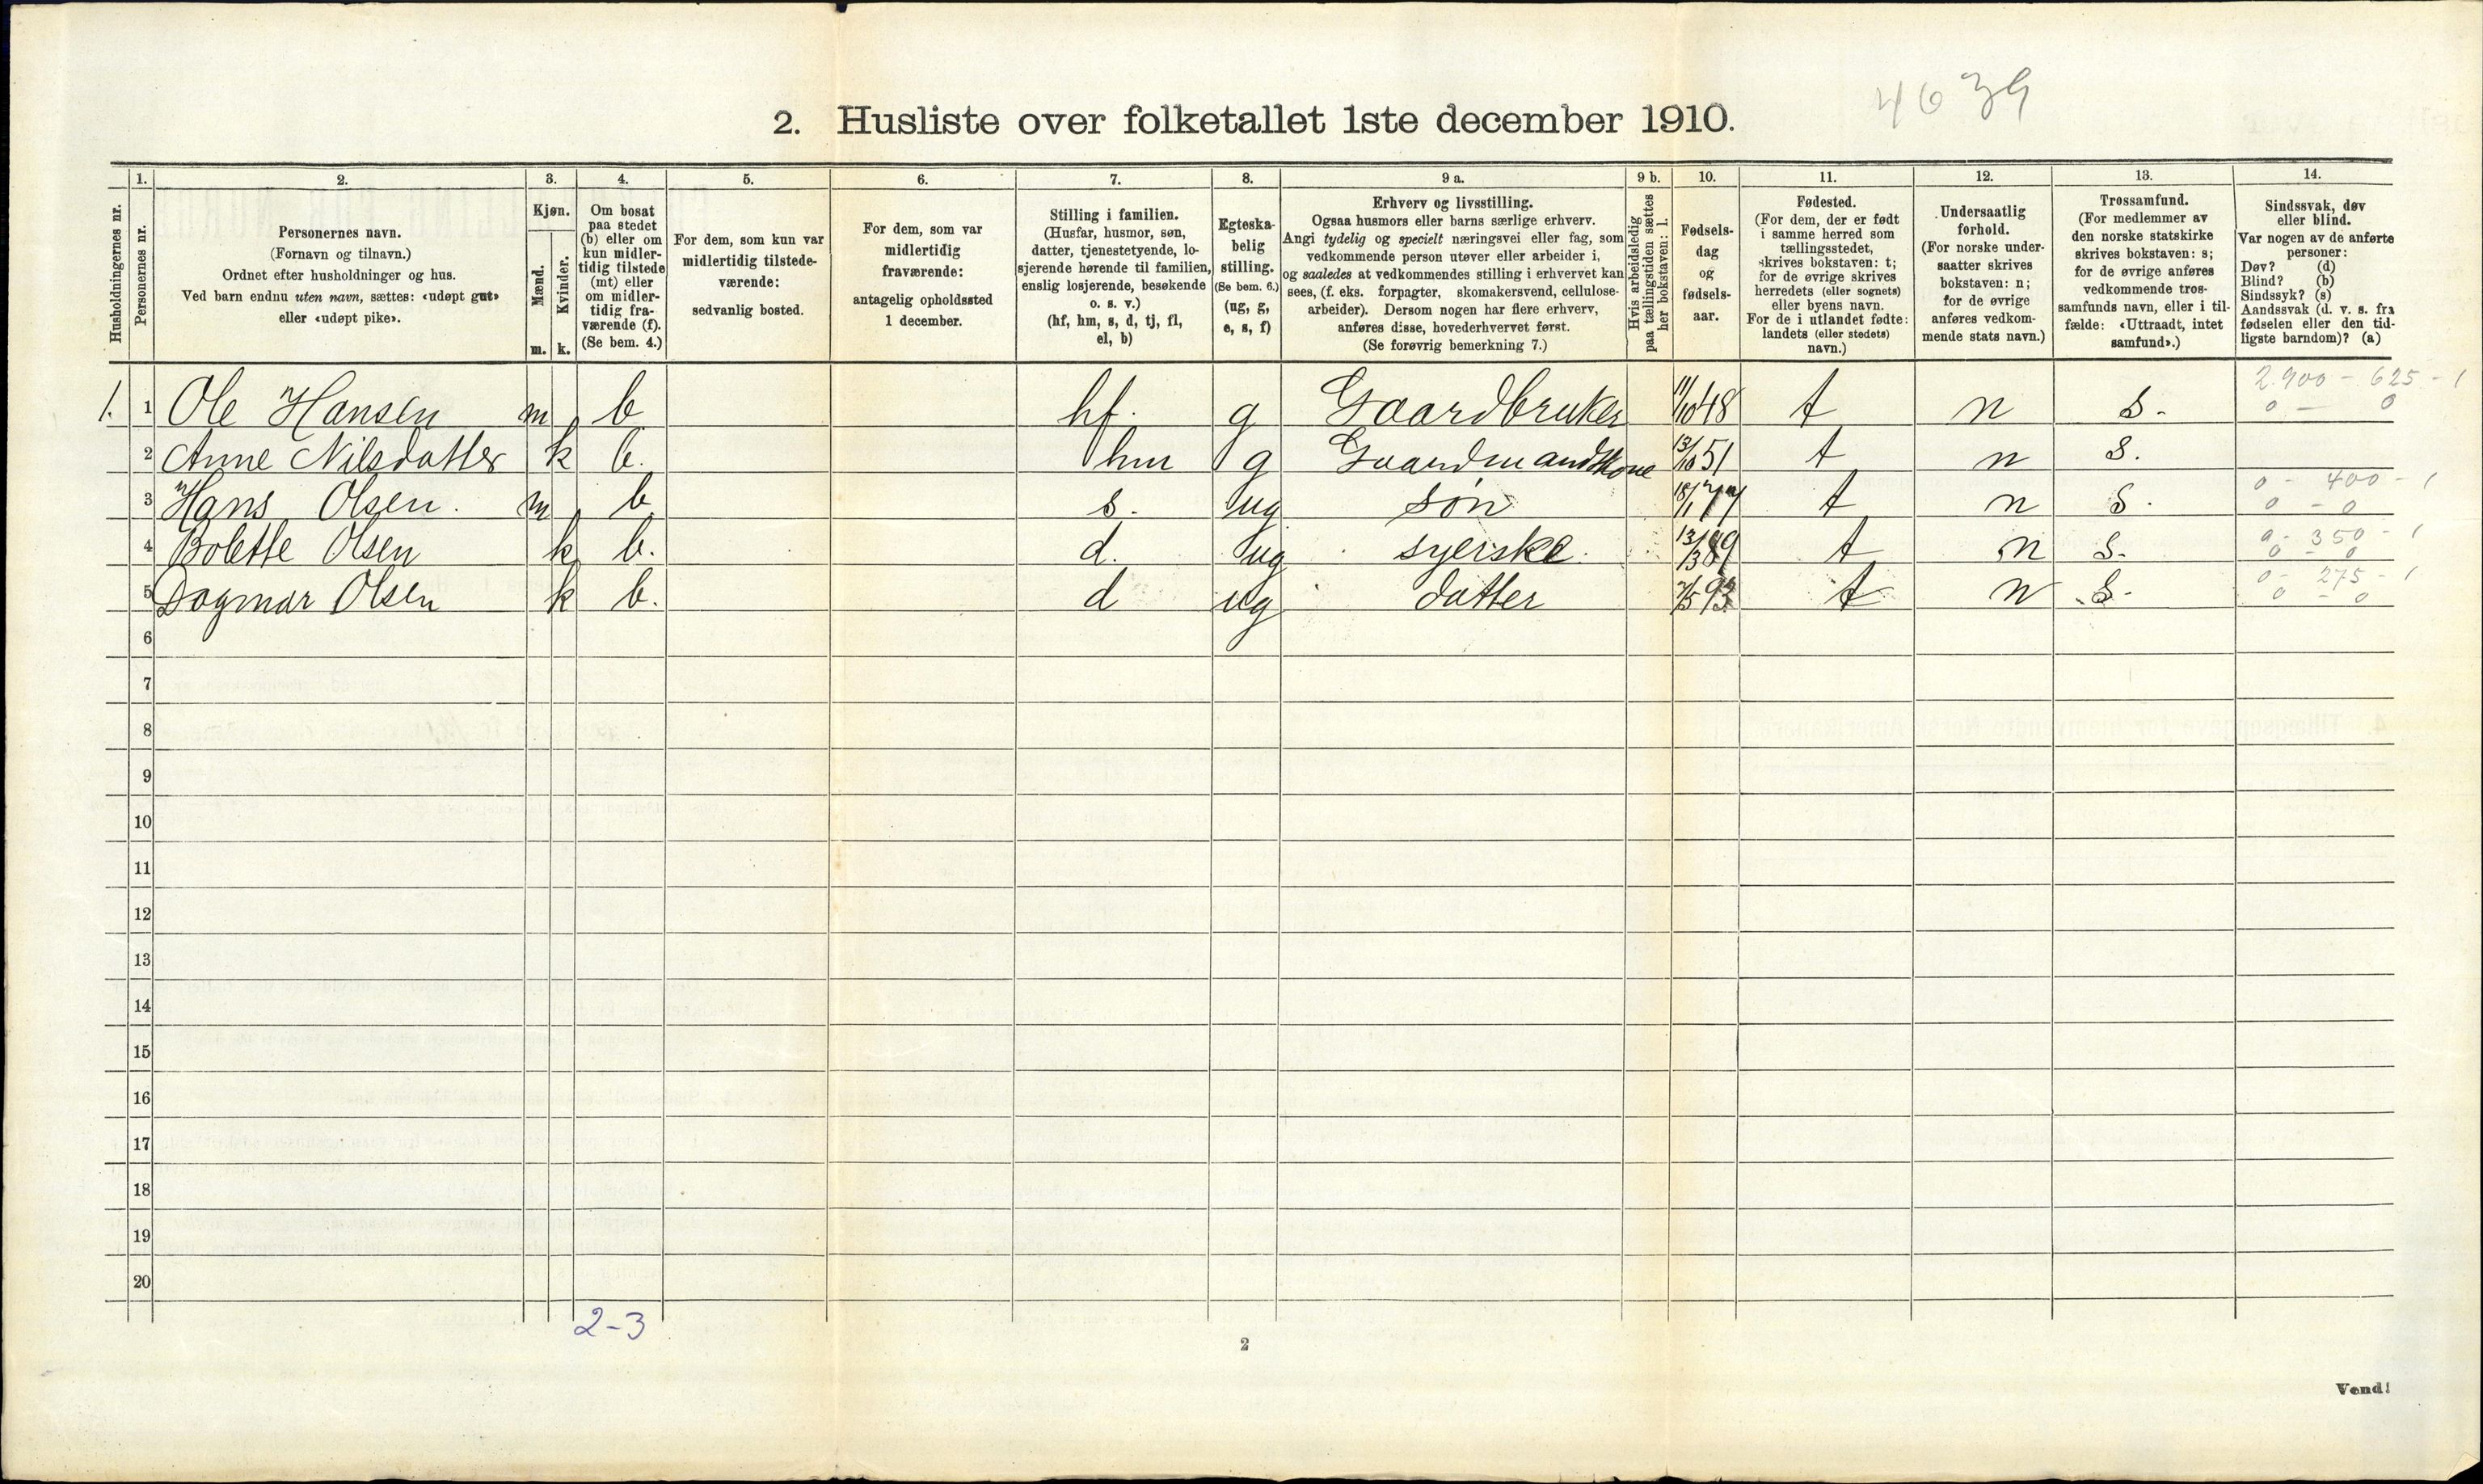 4639
2. Husliste over folketallet 1ste december 1910.
Husholdningernes nr.
1.
Personernes nr.
2.
Personernes navn.
(Fornavn og tilnavn.)
Ordnet efter husholdninger og hus.
Ved barn endnu uten navn, sættes: «udøpt gut»
eller «udøpt pike».
3.
Kjøn.
Mænd.
Kvinder.
m. k.
4.
Om bosat
paa stedet
(b) eller om
kun midler-
tidig tilstede
(mt) eller
om midler-
tidig fra-
værende (f).
(Se bem. 4.)
5.
For dem, som kun var
midlertidig tilstede-
værende:
sedvanlig bosted.
6.
For dem, som var
midlertidig
fraværende:
antagelig opholdssted
1 december.
7.
Stilling i familien.
(Husfar, husmor, søn,
datter, tjenestetyende, lo-
sjerende hørende til familien,
enslig losjerende, besøkende
o. s. v.)
(hf, hm, s, d, tj, fl,
el, b)
8.
Egteska-
belig
stilling.
(Se bem. 6.)
(ug, g,
e, s, f)
9 a.
Erhverv og livsstilling.
Ogsaa husmors eller barns særlige erhverv.
Angi tydelig og specielt næringsvei eller fag, som
vedkommende person utøver eller arbeider i,
og saaledes at vedkommendes stilling i erhvervet kan
sees, (f. eks. forpagter, skomakersvend, cellulose-
arbeider). Dersom nogen har flere erhverv,
anføres disse, hovederhvervet først.
(Se forøvrig bemerkning 7.)
9 b.
Hvis arbeidsledig
paa tællingstiden sættes
her bokstaven: l.
10.
Fødsels-
dag
og
fødsels-
aar.
11.
Fødested.
(For dem, der er født
i samme herred som
tællingsstedet,
skrives bokstaven: t;
for de øvrige skrives
herredets (eller sognets)
eller byens navn.
For de i utlandet fødte:
landets (eller stedets)
navn.)
12.
Undersaatlig
forhold.
(For norske under-
saatter skrives
bokstaven: n;
for de øvrige
anføres vedkom-
mende stats navn.)
13.
Trossamfund.
(For medlemmer av
den norske statskirke
skrives bokstaven: s;
for de øvrige anføres
vedkommende tros-
samfunds navn, eller i til-
fælde: «Uttraadt, intet
samfund».)
14.
Sindssvak, døv
eller blind.
Var nogen av de anførte
personer:
Døv? (d)
Blind? (b)
Sindssyk? (s)
Aandssvak (d. v. s. fra
fødselen eller den tid-
ligste barndom)? (a)
2.900 - 625 - 1
1. 1 Ole Hansen m b hf. g Gaardbruker 11/10 48 t n s. 0 - 0
2 Anne Nilsdatter k b. hm g Gaardmandskone 13/10 51 t n s.
0 - 400 - 1
3 Hans Olsen. m b s. ug søn 18/1 77 t n s. 0 - 0
0 - 350 - 1
4 Bolette Olsen k b. d. ug syerske. 13/3 89 t n s. 0 - 0
0 - 275 - 1
5 Dagmar Olsen k b. d ug datter 93 t n s. 0 - 0
6
7
8
9
10
11
12
13
14
15
16
17
18
19
20
2-3
2
Vend!